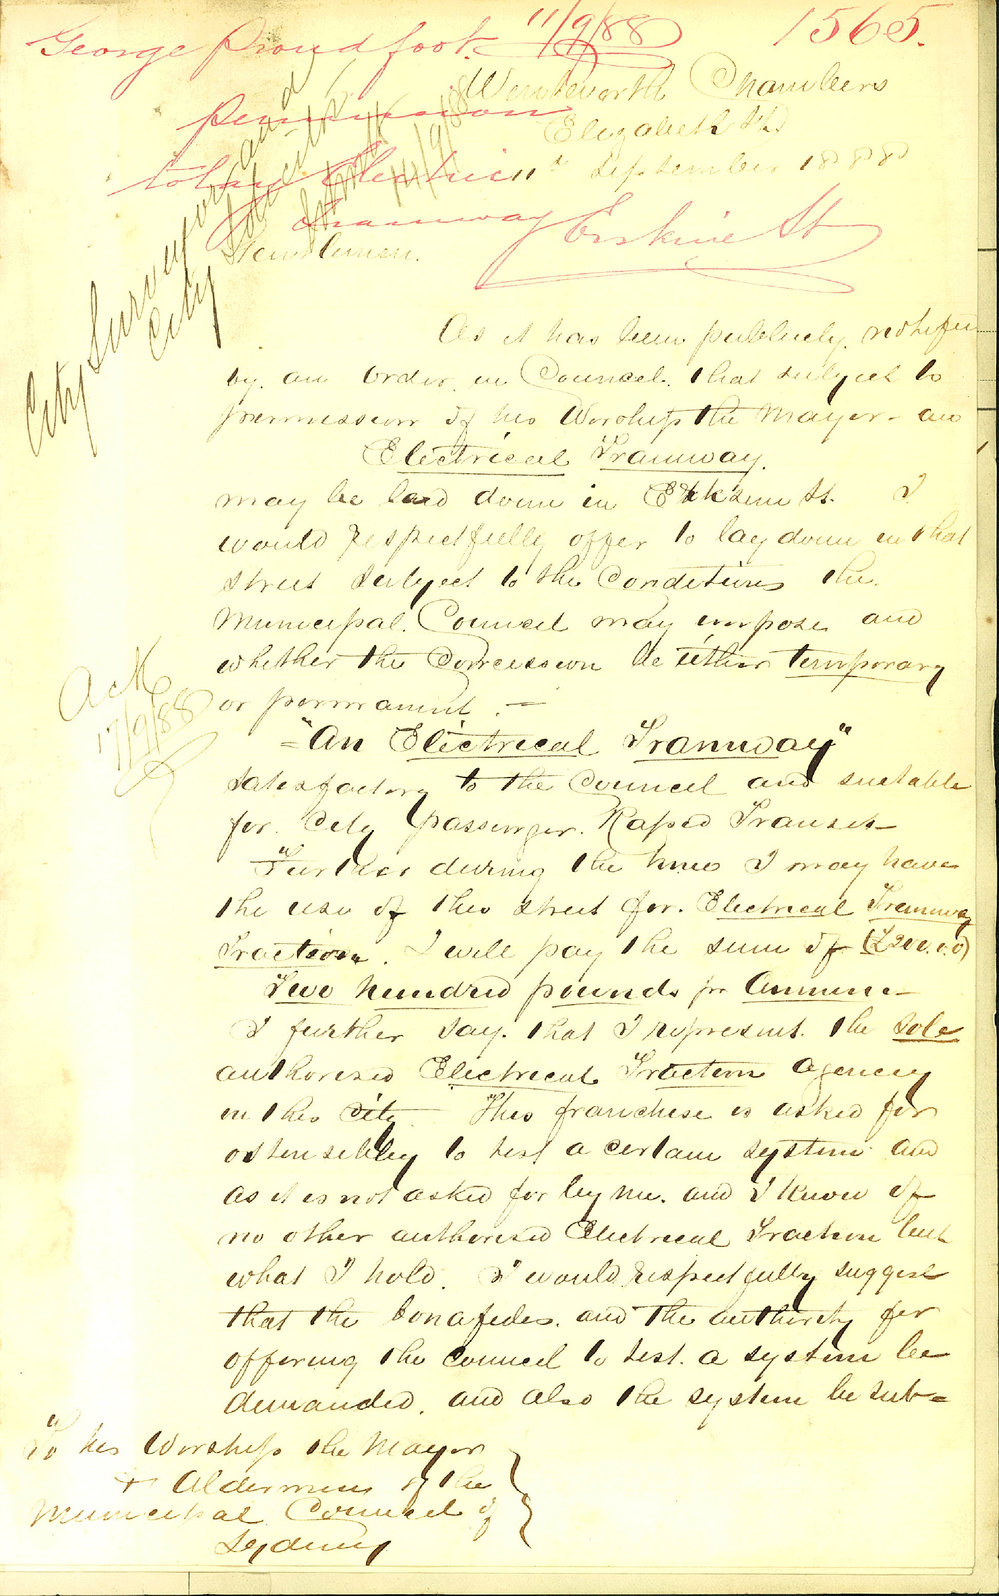 George Proudfoot. 11/9/88 1565.
Wentworth Chambers
Permission
Elizabeth St
to lay Electric
11th September 1888
Tramway Erskine St
Gentlemen.
City Surveyor and
City
14/9/88
As it has been publicly notified
by an order in Council, that subject to
permission of his Worship the Mayor - an
Electrical Tramway.
may be laid down in Erskine St. I
would respectfully offer to lay down in that
street subject to the Conditions the
Municipal Council may impose and
whether the Concession be either temporary
or permanent. —
Ack
17/9/88
= "An Electrical Tramway"
satisfactory to the Council and suitable
for City passenger Rapid Transit —
Further during the time I may have
the use of this street for Electrical Tramway
Traction. I will pay the sum of (£200.0.0)
Two hundred pounds per Annum —
I further say that I represent the sole
authorised Electrical Traction Agency
in this City — This franchise is asked for
ostensibley to test a certain system and
as it is not asked for by me, and I know of
no other authorised Electrical Traction but
what I hold. I would respectfully suggest
that the bonafides and the authority for
offering the Council to test a system be
demanded, and also the system be sub=
To his Worship the Mayor
& Aldermen of the
Municipal Council of
Sydney